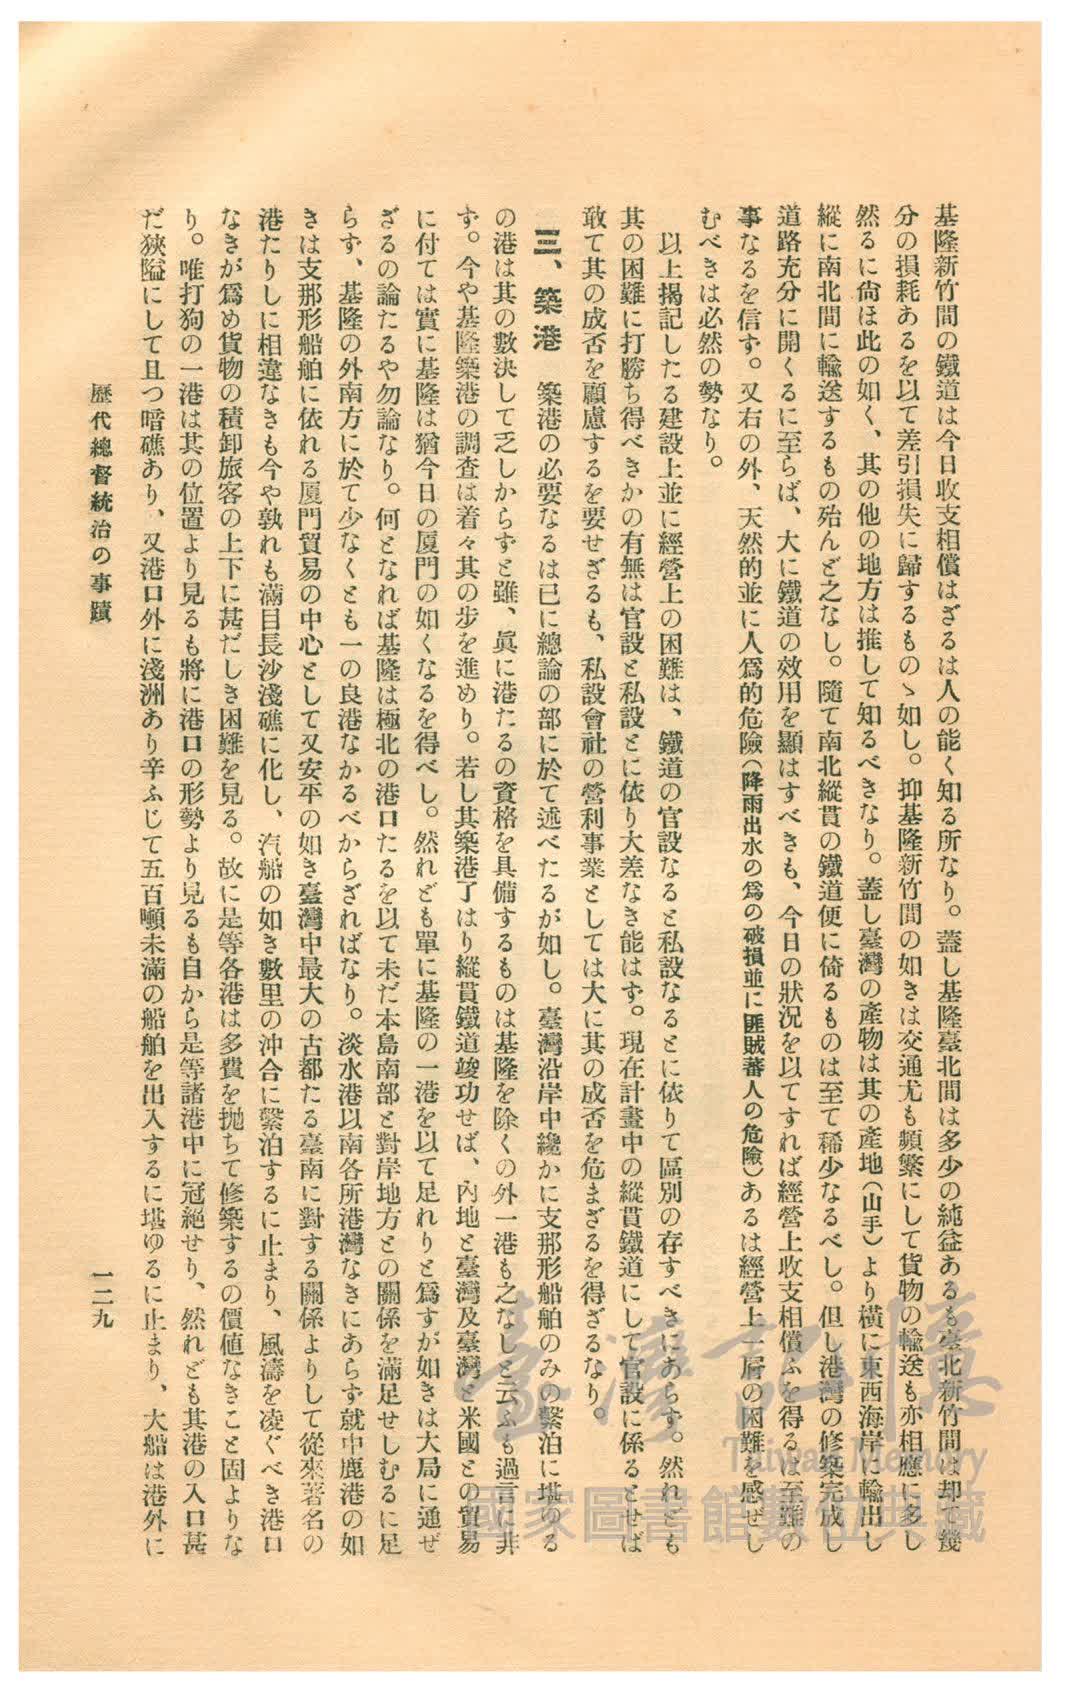 基隆新竹間の鐵道は今日收支相償はざるは人の能く知る所なり。蓋し基隆臺北間は多少の純益あるも臺北新竹間は却て幾
分の損耗あるを以て差引損失に歸するものゝ如し。抑基隆新竹間の如きは交通尤も頻繁にして貨物の輸送も亦相應に多し
然るに尙ほ此の如く、其の他の地方は推して知るべきなり。蓋し臺灣の產物は其の產地(山手)より橫に東西海岸に輸出し
縱に南北間に輸送するもの殆んど之なし。隨て南北縱貫の鐵道便に倚るものは至て稀少なるべし。但し港灣の修築完成し
道路充分に開くるに至らば、大に鐵道の效用を顯はすべきも、今日の狀況を以てすれば經營上收支相償ふを得るは至難の
事なるを信ず。又右の外、天然的並に人爲的危險(降雨出水の爲の破損並に匪賊蕃人の危險)あるは經營上一層の困難を感ぜし
むべきは必然の勢なり。
以上揭記したる建設上並に經營上の困難は、鐵道の官設なると私設なるとに依りて區別の存すべきにあらず。然れども
其の困難に打勝ち得べきかの有無は官設と私設とに依り大差なき能はず。現在計畫中の縱貫鐵道にして官設に係るとせば
敢て其の成否を顧慮するを要せざるも、私設會社の營利事業としては大に其の成否を危まざるを得ざるなり。
三、築港 築港の必要なるは已に總論の部に於て述べたるが如し。臺灣沿岸中纔かに支那形船舶のみの繫泊に堪ゆる
の港は其の數決して乏しからずと雖、眞に港たるの資格を具備するものは基隆を除くの外一港も之なしと云ふも過言に非
ず。今や基隆築港の調查は着々其の步を進めり。若し其築港了はり縱貫鐵道竣功せば、內地と臺灣及臺灣と米國との貿易
に付ては實に基隆は猶今日の厦門の如くなるを得べし。然れども單に基隆の一港を以て足れりと爲すが如きは大局に通ぜ
ざるの論たるや勿論なり。何となれば基隆は極北の港口たるを以て未だ本島南部と對岸地方との關係を滿足せしむるに足
らず、基隆の外南方に於て少なくとも一の良港なかるべからざればなり。淡水港以南各所港灣なきにあらず就中鹿港の如
きは支那形船舶に依れる厦門貿易の中心として又安平の如き臺灣中最大の古都たる臺南に對する關係よりして從來著名の
港たりしに相違なきも今や孰れも滿目長沙淺礁に化し、汽船の如き數里の沖合に繫泊するに止まり、風濤を凌ぐべき港口
なきが爲め貨物の積卸旅客の上下に甚だしき困難を見る。故に是等各港は多費を抛ちて修築するの價値なきこと固よりな
り。唯打狗の一港は其の位置より見るも將に港口の形勢より見るも自から是等諸港中に冠絕せり、然れども其港の入口甚
だ狹隘にして且つ暗礁あり、又港口外に淺洲あり辛ふじて五百噸未滿の船舶を出入するに堪ゆるに止まり、大船は港外に
歷代總督統治の事蹟
一二九
臺灣記憶
Taiwan Memory
國家圖書館數位典藏